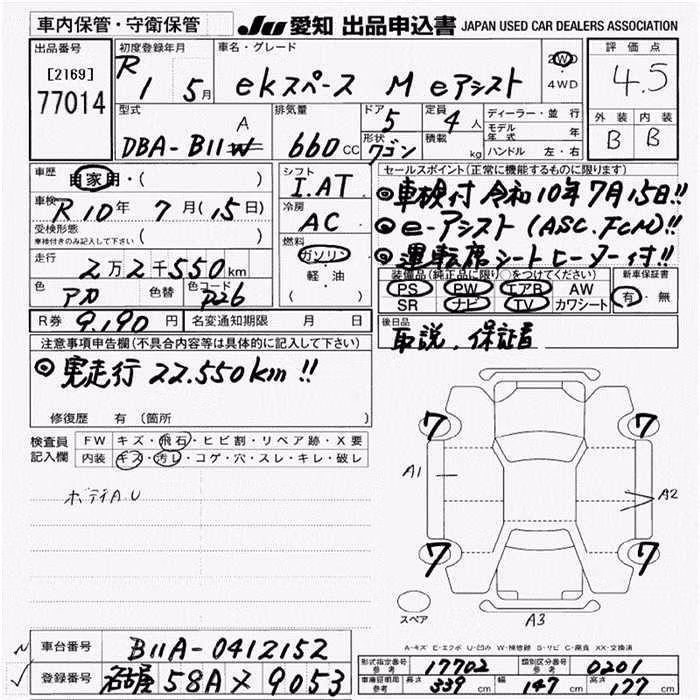 車内保管・守衛保管
JU 愛知 出品申込書 JAPAN USED CAR DEALERS ASSOCIATION
出品番号
[2169]
77014
初度登録年月
R 1 5月
車名・グレード
ekスペース M eアシスト
2WD・4WD
評価点
4.5
外装 内装
B B
型式
DBA-B11A
排気量
660 cc
ドア 5
形状 ワゴン
定員 4人
積載 kg
ディーラー・並行
モデル年式 年
ハンドル 左・右
車歴 自家用・( )
車検 R10年 7月(15日)
受検形態
車検付きのみ記入して下さい ( )
走行 2万2千550km
色 アカ 色替 色コード P26
シフト
I.AT
冷房
AC
燃料
ガソリン
軽・油
( )
セールスポイント(正常に機能するものに限ります)
◎車検付 令和10年7月15日!!
◎e-アシスト(ASC.FCM)!!
◎運転席シートヒーター付!!
装備品(純正品に限り○をつけてください) 新車保証書
PS PW エアB AW 有・無
SR ナビ TV カワシート
R券 9,190円 名変通知期限 月 日
後日品
取説、保証書
注意事項申告欄(不具合内容等は具体的に記入して下さい)
◎実走行22.550km!!
修復歴 有(箇所 )
検査員記入欄
FW キズ・飛石・ヒビ割・リペア跡・X要
内装 キズ・汚レ・コゲ・穴・スレ・キレ・破レ
ボデイA.U
7 7
A1 A2
7 7
スペア
A3
A-キズ E-エクボ U-凹み W-補修跡 S-サビ C-腐食 XX-交換済
車台番号 B11A-0412152
登録番号 名古屋 58A メ 9053
形式指定番号 参考 17702 類別区分番号 参考 0201
車庫証明用 参考 長さ 339cm 幅 147cm 高さ 177cm